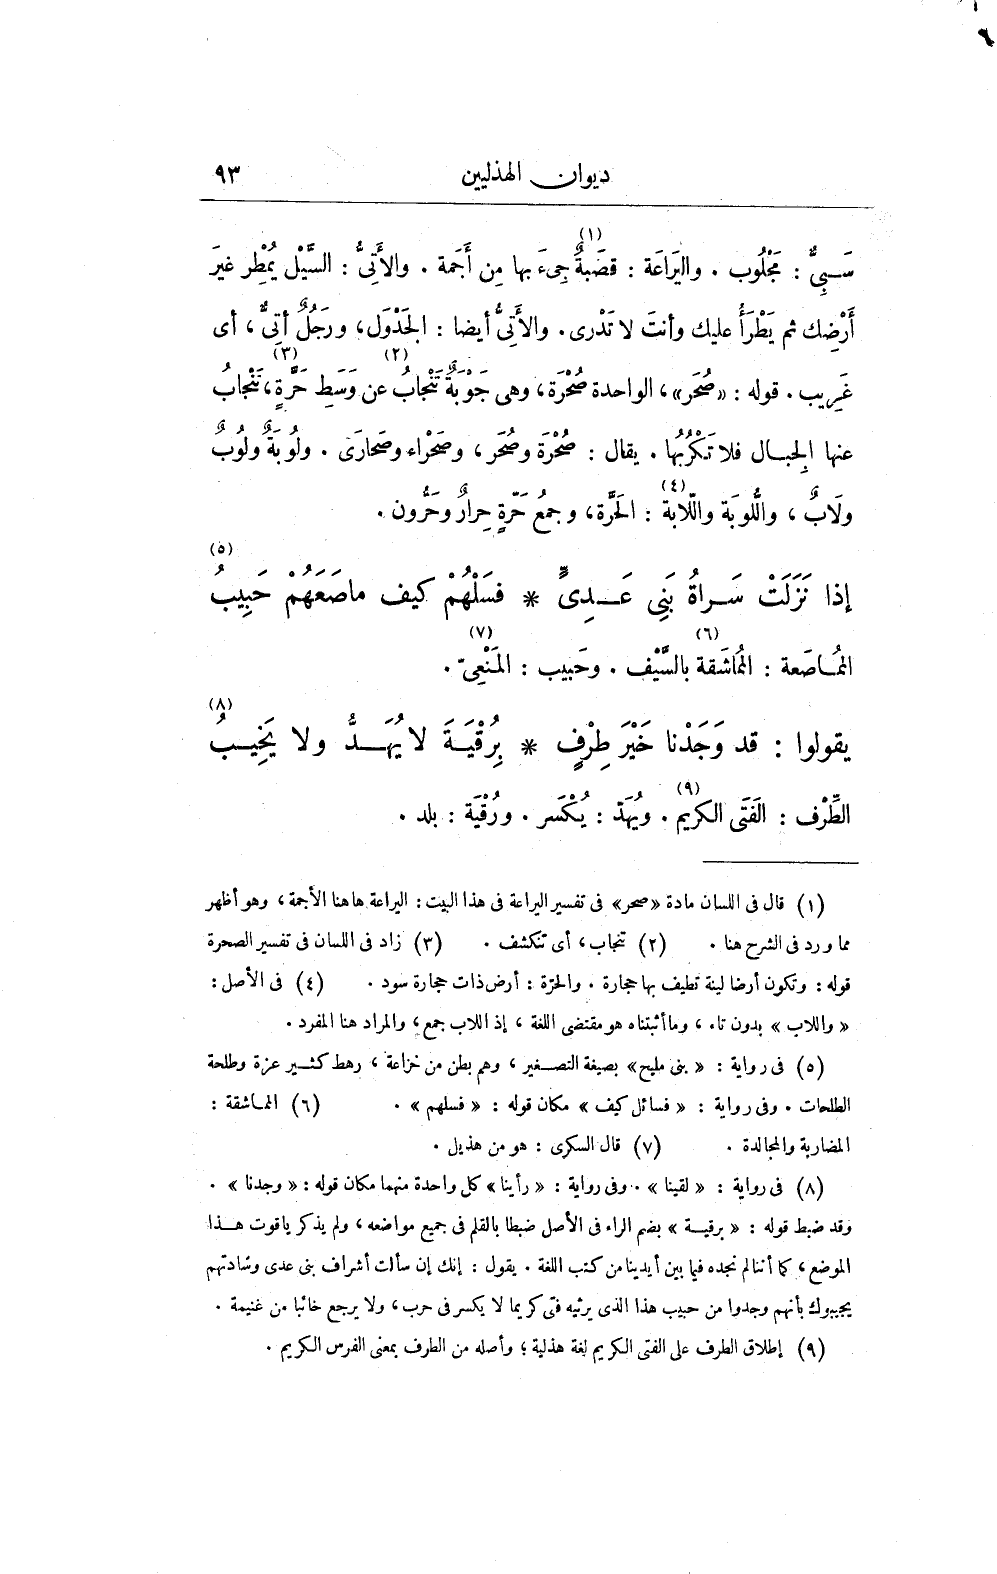 ديوان الهذليين ٩٣
سَبِىٌّ : مَجْلُوب . واليَراعَة : قَصَبةٌ (١) جِىءَ بها مِن أَجَمة . والأَتِىُّ : السَّيْل يُمْطِر غيرَ
أَرْضِك ثم يَطْرَأُ عليك وأنتَ لا تَدْرى . والأَتِىُّ أيضا : الجَدْوَل، ورَجُلٌ أتِىٌّ ، أى
غَرِيب . قوله : «صُحَر» ، الواحدة صُحْرَة، وهى جَوْبَةٌ تَنْجابُ (٢) عن وَسَطِ حَرَّةٍ (٣)، تَنْجابُ
عنها الجِبـال فلا تَكْرُبُها . يقال : صُحْرَة وصُحَر ، وصَحْراء وصَحارَى . ولُوبَةٌ ولُوبٌ
ولَابٌ ، واللُّوبَة واللّابة (٤) : الحَرَّة، وجمعُ حَرّةٍ حِرارٌ وحَرُّون .
إذا نَزَلَتْ سَـراةُ بَنِى عَـدِىٍّ * فسَلْهُمْ كيف ماصَعَهُمْ حَبِيبُ (٥)
المُـاصَعة : المُاشَقة (٦) بالسَّيْف . وحَبيب : المَنْعِىّ (٧) .
يقولوا : قد وَجَدْنا خَيْرَ طِرْفٍ * بِرُقْيَـةَ لا يُهَـدُّ ولا يَخِيـبُ (٨)
الطِّرْف : الفَتَى الكريم (٩) . ويُهَدّ : يُكْسَر . ورُقْيَة : بلد .
(١) قال فى اللسان مادة «صحر» فى تفسير اليراعة فى هذا البيت : اليراعة هاهنا الأجمة ، وهو أظهر
مما ورد فى الشرح هنا . (٢) تنجاب، أى تنكشف . (٣) زاد فى اللسان فى تفسير الصحرة
قوله : وتكون أرضا لينة تطيف بها حجارة . والحرّة : أرض ذات حجارة سود . (٤) فى الأصل :
«واللاب» بدون تاء ، وما أثبتناه هو مقتضى اللغة ، إذ اللاب جمع، والمراد هنا المفرد .
(٥) فى رواية : «بنى مليح» بصيغة التصـغير ، وهم بطن من خزاعة ، رهط كثـير عزة وطلحة
الطلحات . وفى رواية : «فسائل كيف» مكان قوله : «فسلهم» . (٦) المـاشقة :
المضاربة والمجالدة . (٧) قال السكرى : هو من هذيل .
(٨) فى رواية : «لقينا» . وفى رواية : «رأينا» كل واحدة منهما مكان قوله : «وجدنا» .
وقد ضبط قوله : «برقيـة» بضم الراء فى الأصل ضبطا بالقلم فى جميع مواضعه ، ولم يذكر ياقوت هـذا
الموضع ، كما أننا لم نجده فيما بين أيدينا من كتب اللغة . يقول : إنك إن سألت أشراف بنى عدى وسادتهم
يجيبوك بأنهم وجدوا من حبيب هذا الذى يرثيه فتى كريما لا يكسر فى حرب ، ولا يرجع خائبا من غنيمة .
(٩) إطلاق الطرف على الفتى الكريم لغة هذلية ؛ وأصله من الطرف بمعنى الفرس الكريم .